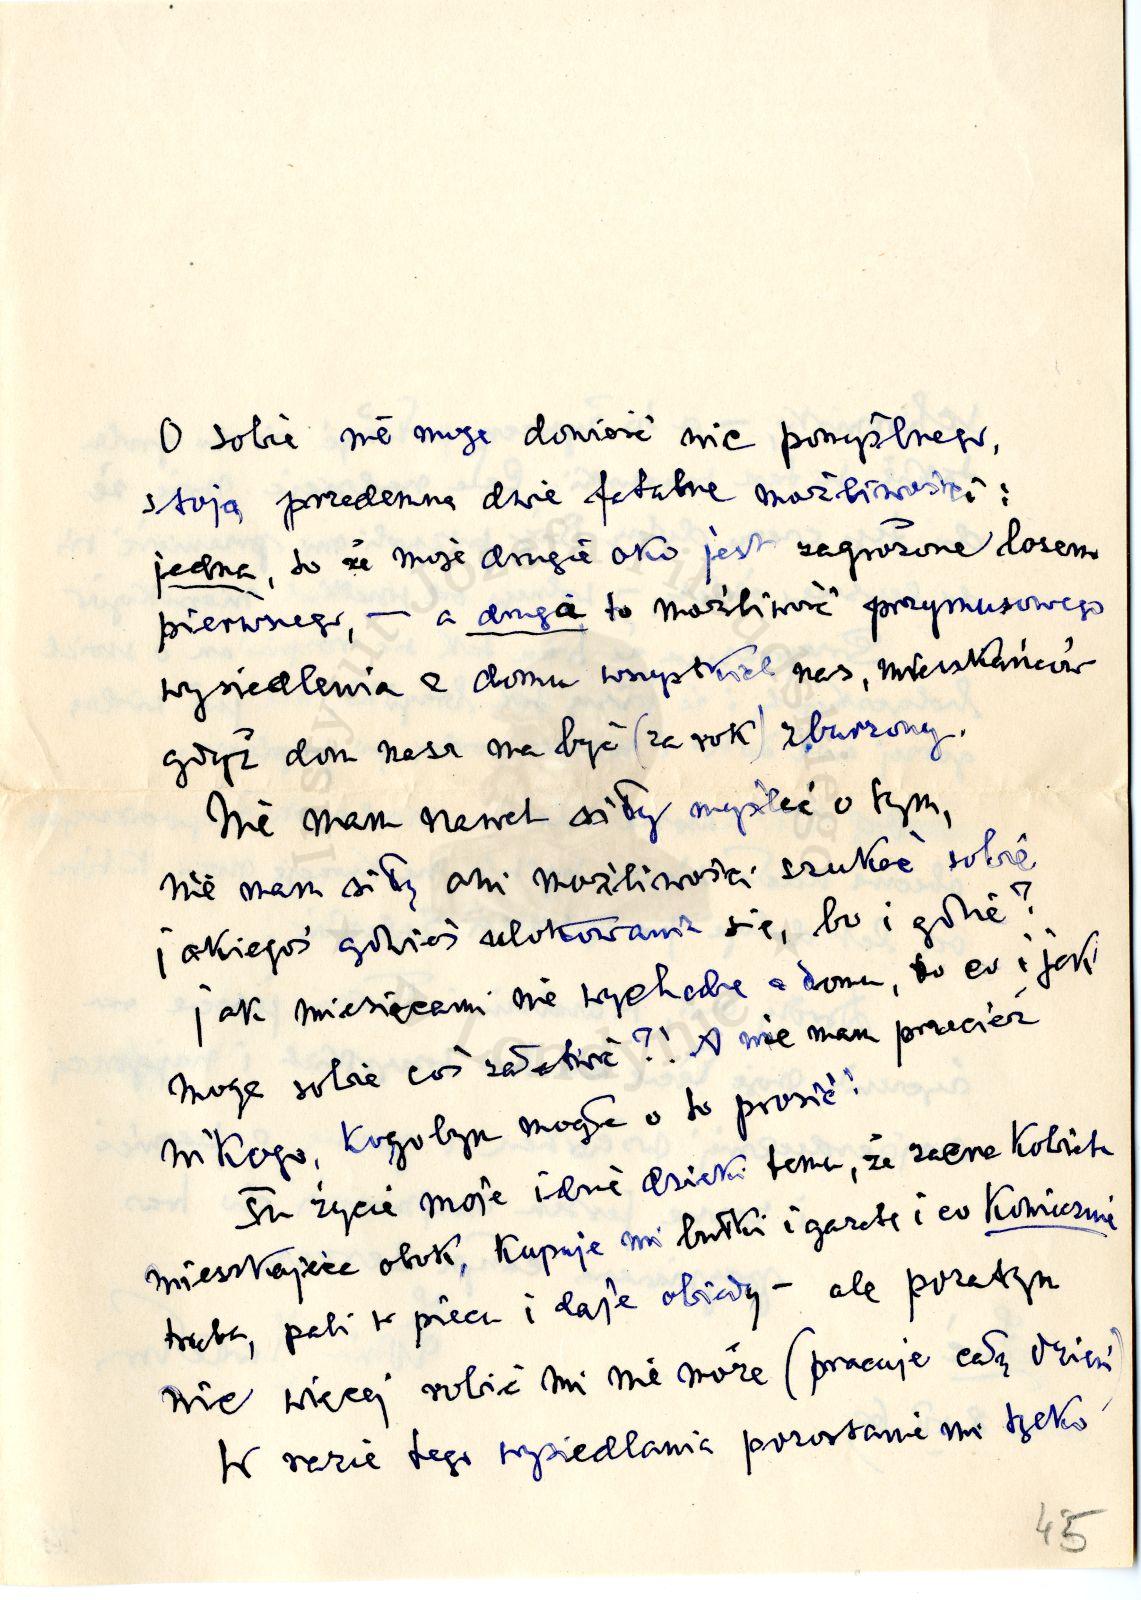 O sobie nie mogę donieść nic pomyślnego,
stoją przedemną dwie fatalne możliwości:
jedna, to że moje drugie oko jest zagrożone losem
pierwszego, — a druga to możliwość przymusowego
wysiedlenia z domu wszystkich nas, mieszkańców
gdyż dom nasz ma być (za rok) zburzony.
Nie mam nawet siły myśleć o tym,
nie mam siły ani możliwości szukać sobie
jakiegoś gdzieś ulokowania się, bo i gdzie?
jak miesiącami nie wychodzę z domu, to co i jak
mogę sobie coś załatwić?! A nie mam przecież
nikogo, kogobym mogła o to prosić!
Tu życie moje idzie dzięki temu, że zacna kobieta
mieszkająca obok, kupuje mi bułki i gazetę i co koniecznie
trzeba, pali w piecu i daje obiady — ale pozatym
nic więcej robić mi nie może (pracuje całą dzień)
W razie tego wysiedlania pozostanie mi tylko
45
Instytut Józefa Piłsudskiego
w Londynie